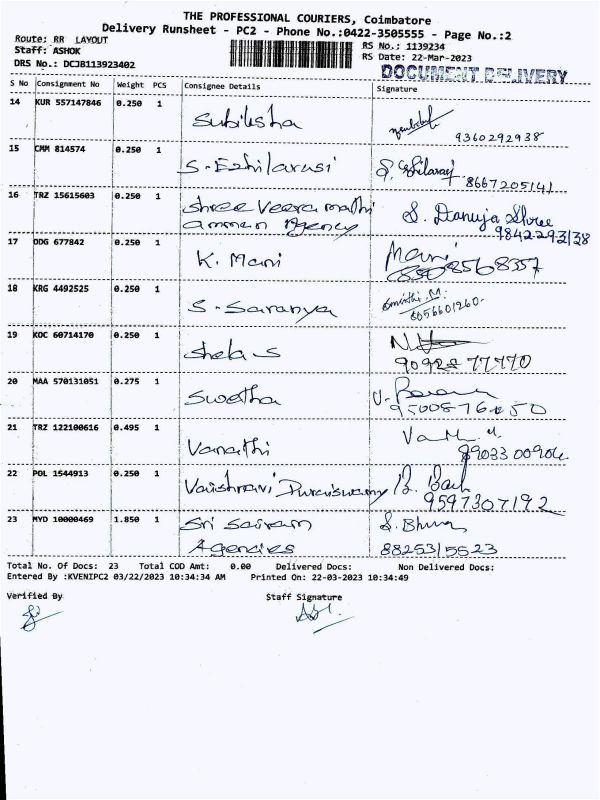 THE PROFESSIONAL COURIERS, Coimbatore
Delivery Runsheet - PC2 - Phone No.:0422-3505555 - Page No.:2
Route: RR LAYOUT
Staff: ASHOK
DRS No.: DCJB113923402
RS No.: 1139234
RS Date: 22-Mar-2023
DOCUMENT DELIVERY
S No Consignment No Weight PCS Consignee Details Signature
14 KUR 557147846 0.250 1 Subiksha
9360292938
15 CMM 814574 0.250 1 S. Ezhilarasi S. Ezhilarasi
8667205141
16 TRZ 15615603 0.250 1 Shree Veera mathi S. Danuja Shree
Amman Agency 9842293138
17 ODG 677842 0.250 1 K. Mani Mani
18 KRG 4492525 0.250 1 S. Saranya
8056601260
19 KOC 60714170 0.250 1 Shela S
90928 77770
20 MAA 570131051 0.275 1 Swetha
21 TRZ 122100616 0.495 1 Vanathi
22 POL 1544913 0.250 1 Vaishnavi Duraiswamy
9597307192
23 MYD 10000469 1.850 1 Sri Sairam
Agencies 8825315523
Total No. Of Docs: 23 Total COD Amt: 0.00 Delivered Docs: Non Delivered Docs:
Entered By :KVENIPC2 03/22/2023 10:34:34 AM Printed On: 22-03-2023 10:34:49
Verified By Staff Signature